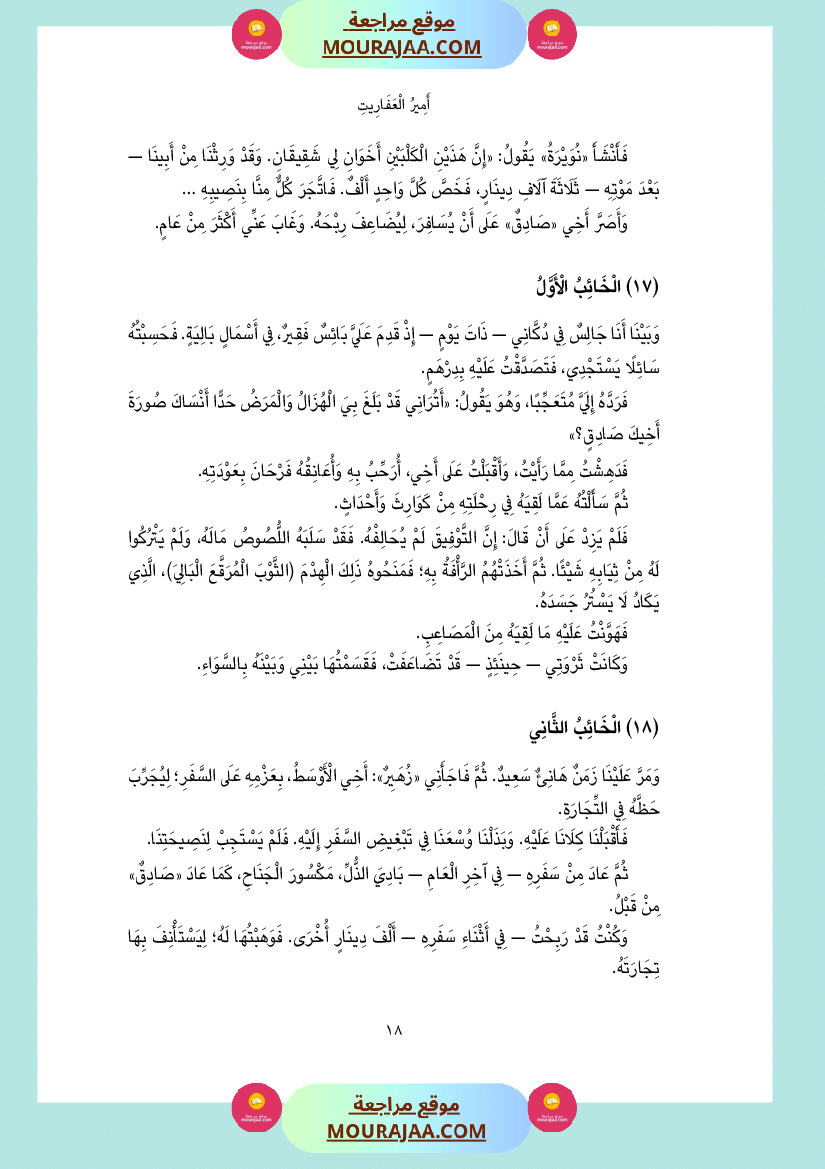 موقع مراجعة
MOURAJAA.COM
أَمِيرُ الْعَفَارِيتِ
فَأَنْشَأَ «نُوَيْرَةُ» يَقُولُ: «إِنَّ هَذَيْنِ الْكَلْبَيْنِ أَخَوَانِ لِي شَقِيقَانِ. وَقَدْ وَرِثْنَا مِنْ أَبِينَا —
بَعْدَ مَوْتِهِ — ثَلَاثَةَ آلَافِ دِينَارٍ، فَخَصَّ كُلَّ وَاحِدٍ أَلْفٌ. فَاتَّجَرَ كُلٌّ مِنَّا بِنَصِيبِهِ ...
وَأَصَرَّ أَخِي «صَادِقٌ» عَلَى أَنْ يُسَافِرَ، لِيُضَاعِفَ رِبْحَهُ. وَغَابَ عَنِّي أَكْثَرَ مِنْ عَامٍ.
(١٧) الْخَائِبُ الْأَوَّلُ
وَبَيْنَا أَنَا جَالِسٌ فِي دُكَّانِي — ذَاتَ يَوْمٍ — إِذْ قَدِمَ عَلَيَّ بَائِسٌ فَقِيرٌ، فِي أَسْمَالٍ بَالِيَةٍ. فَحَسِبْتُهُ
سَائِلًا يَسْتَجْدِي، فَتَصَدَّقْتُ عَلَيْهِ بِدِرْهَمٍ.
فَرَدَّهُ إِلَيَّ مُتَعَجِّبًا، وَهُوَ يَقُولُ: «أَتُرَانِي قَدْ بَلَغَ بِيَ الْهُزَالُ وَالْمَرَضُ حَدًّا أَنْسَاكَ صُورَةَ
أَخِيكَ صَادِقٍ؟»
فَدَهِشْتُ مِمَّا رَأَيْتُ، وَأَقْبَلْتُ عَلَى أَخِي، أُرَحِّبُ بِهِ وَأُعَانِقُهُ فَرْحَانَ بِعَوْدَتِهِ.
ثُمَّ سَأَلْتُهُ عَمَّا لَقِيَهُ فِي رِحْلَتِهِ مِنْ كَوَارِثَ وَأَحْدَاثٍ.
فَلَمْ يَزِدْ عَلَى أَنْ قَالَ: إِنَّ التَّوْفِيقَ لَمْ يُحَالِفْهُ. فَقَدْ سَلَبَهُ اللُّصُوصُ مَالَهُ، وَلَمْ يَتْرُكُوا
لَهُ مِنْ ثِيَابِهِ شَيْئًا. ثُمَّ أَخَذَتْهُمُ الرَّأْفَةُ بِهِ؛ فَمَنَحُوهُ ذَلِكَ الْهِدْمَ (الثَّوْبَ الْمُرَقَّعَ الْبَالِيَ)، الَّذِي
يَكَادُ لَا يَسْتُرُ جَسَدَهُ.
فَهَوَّنْتُ عَلَيْهِ مَا لَقِيَهُ مِنَ الْمَصَاعِبِ.
وَكَانَتْ ثَرْوَتِي — حِينَئِذٍ — قَدْ تَضَاعَفَتْ، فَقَسَمْتُهَا بَيْنِي وَبَيْنَهُ بِالسَّوَاءِ.
(١٨) الْخَائِبُ الثَّانِي
وَمَرَّ عَلَيْنَا زَمَنٌ هَانِئٌ سَعِيدٌ. ثُمَّ فَاجَأَنِي «زُهَيْرٌ»: أَخِي الْأَوْسَطُ، بِعَزْمِهِ عَلَى السَّفَرِ؛ لِيُجَرِّبَ
حَظَّهُ فِي التِّجَارَةِ.
فَأَقْبَلْنَا كِلَانَا عَلَيْهِ. وَبَذَلْنَا وُسْعَنَا فِي تَبْغِيضِ السَّفَرِ إِلَيْهِ. فَلَمْ يَسْتَجِبْ لِنَصِيحَتِنَا.
ثُمَّ عَادَ مِنْ سَفَرِهِ — فِي آخِرِ الْعَامِ — بَادِيَ الذُّلِّ، مَكْسُورَ الْجَنَاحِ، كَمَا عَادَ «صَادِقٌ»
مِنْ قَبْلُ.
وَكُنْتُ قَدْ رَبِحْتُ — فِي أَثْنَاءِ سَفَرِهِ — أَلْفَ دِينَارٍ أُخْرَى. فَوَهَبْتُهَا لَهُ؛ لِيَسْتَأْنِفَ بِهَا
تِجَارَتَهُ.
١٨
موقع مراجعة
MOURAJAA.COM